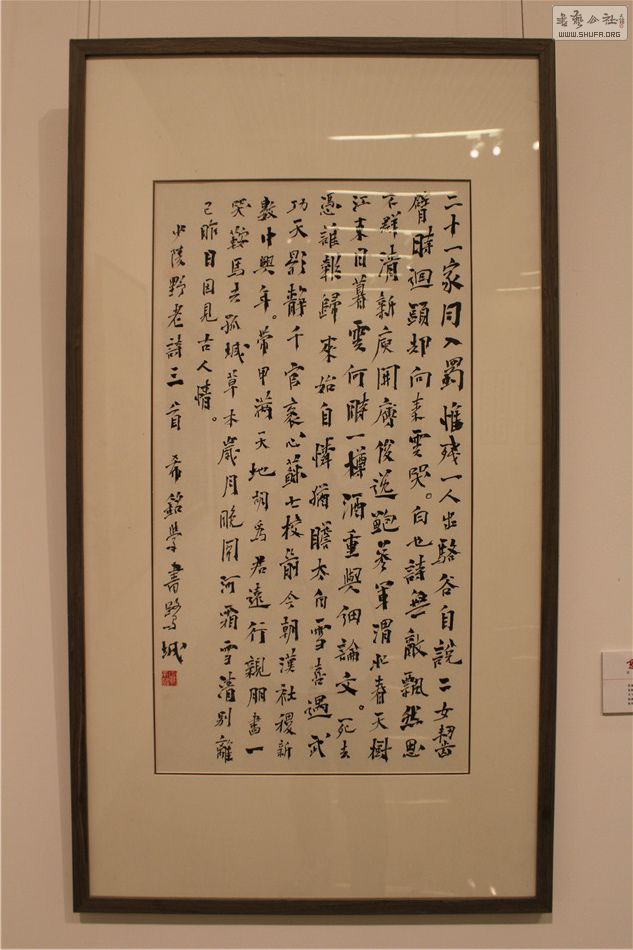 二十一家同入蜀惟殘一人出駱谷自說二女齧
臂時迴頭却向秦雲哭。白也詩無敵飄然思
不群清新庾開府俊逸鮑參軍渭北春天樹
江東日暮雲何時一樽酒重與細論文。死去
憑誰報歸來始自憐猶瞻太白雪喜遇武
功天影靜千官裏心蘇七校前今朝漢社稷新
數中興年。帶甲滿天地胡爲君遠行親朋盡一
哭鞍馬去孤城草木歲月晚關河霜雪清別離
已昨日因見古人情。
少陵野老詩三首 希銘學書鷺城
書藝公社
WWW.SHUFA.ORG